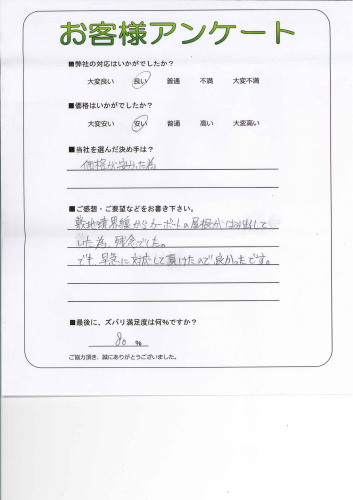 お客様アンケート
■弊社の対応はいかがでしたか？
大変良い 良い 普通 不満 大変不満
■価格はいかがでしたか？
大変安い 安い 普通 高い 大変高い
■当社を選んだ決め手は？
価格が安かった為
■ご感想・ご要望などをお書き下さい。
敷地境界線からカーポートの屋根がはみ出して
いた為、残念でした。
でも、早急に対応して頂けたので良かったです。
■最後に、ズバリ満足度は何％ですか？
80 %
ご協力頂き、誠にありがとうございました。